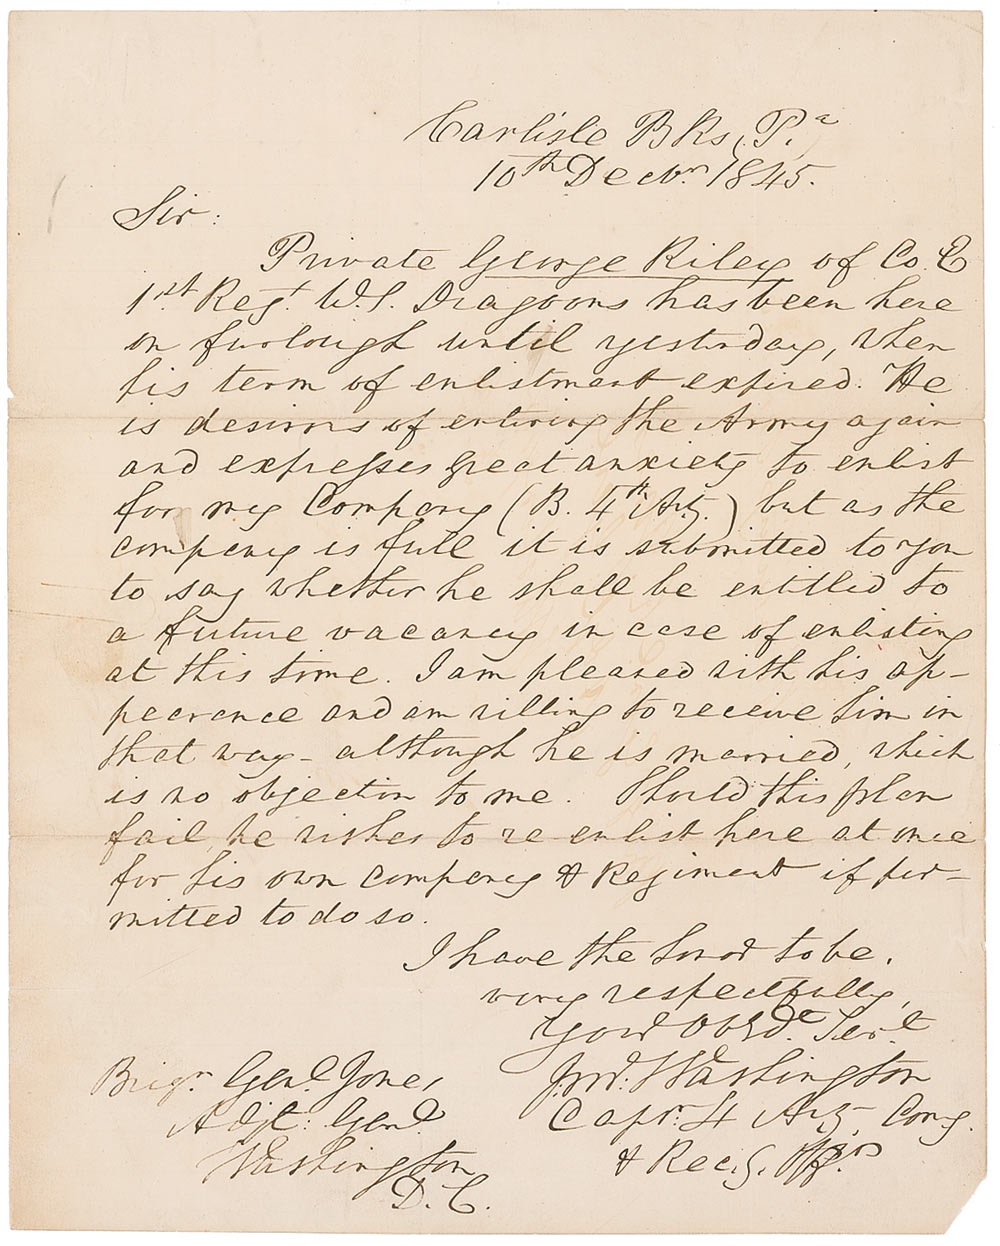 Carlisle Bks, Pa
10th Decbr. 1845.
Sir:
Private George Riley of Co. E
1st Regt. U.S. Dragoons has been here
on furlough until yesterday, when
his term of enlistment expired. He
is desirous of entering the Army again
and expresses great anxiety to enlist
for my Company (B. 4th Arty.) but as the
company is full it is submitted to you
to say whether he shall be entitled to
a future vacancy in case of enlisting
at this time. I am pleased with his ap-
pearance and am willing to receive him in
that way - although he is married, which
is no objection to me. Should this plan
fail, he wishes to re-enlist here at once
for his own company & Regiment if per-
mitted to do so.
I have the honor to be,
very respectfully,
Your Obedt. Servt.
Brigr. Genl. Jones,
Adjt. Genl.
Washington
D.C.
Washington
Capt. 4 Arty, Comg.
& Recg.